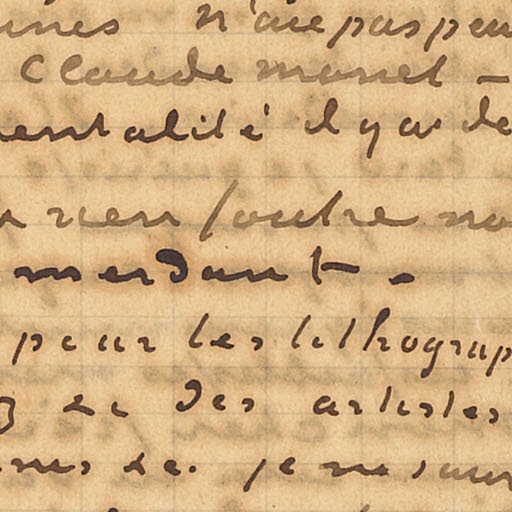 n'aie pas peu
Claude monet -
mentalité il y a de
rien foutre no
merdant -
pour les lithograp
et des artistes
je ne sau